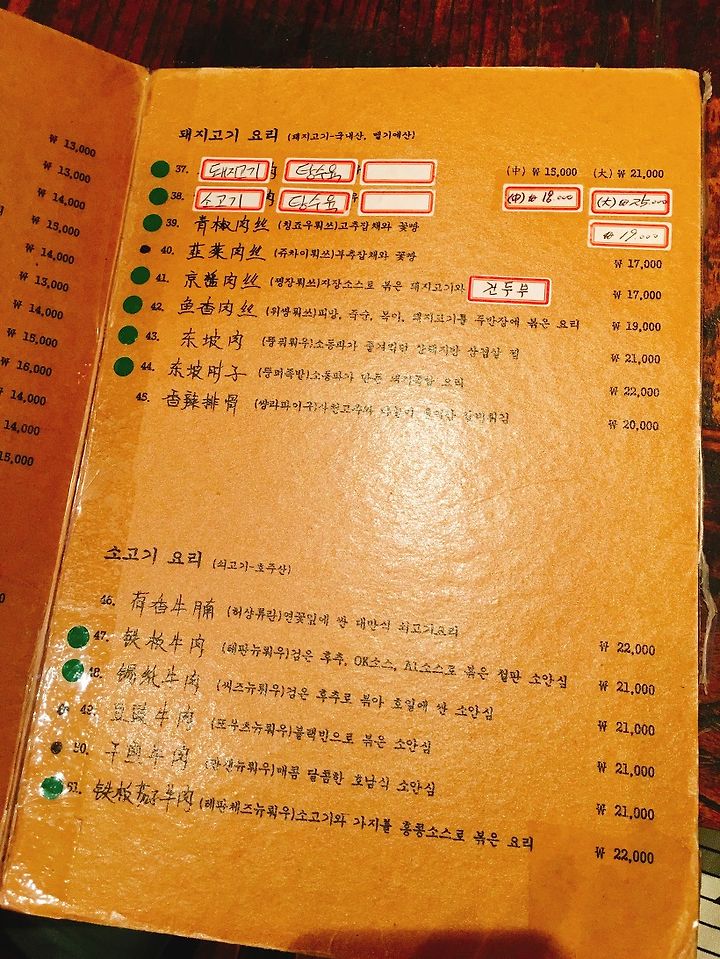 ₩ 13,000
₩ 13,000
₩ 14,000
₩ 15,000
₩ 14,000
₩ 13,000
₩ 14,000
₩ 15,000
₩ 16,000
₩ 14,000
₩ 14,000
15,000
돼지고기 요리 (돼지고기-국내산, 벨기에산)
37. 돼지고기 탕수육 (中) ₩ 15,000 (大) ₩ 21,000
38. 소고기 탕수육 (中) ₩ 18,000 (大) ₩ 25,000
39. 青椒肉丝 (칭쟈우뤄쓰)고추잡채와 꽃빵 ₩ 19,000
40. 韮菜肉丝 (쥬차이뤄쓰)부추잡채와 꽃빵 ₩ 17,000
41. 京酱肉丝 (찡장뤄쓰)자장소스로 볶은 돼지고기와 건두부 ₩ 17,000
42. 鱼香肉丝 (위썅뤄쓰)피망, 죽순, 목이, 돼지고기를 두반장에 볶은 요리 ₩ 19,000
43. 东坡肉 (뚱퍼뤄우)소동파가 즐겨먹던 삼겹살 찜 ₩ 21,000
44. 东坡肘子 (뚱퍼족발)소동파가 만든 요리 ₩ 22,000
45. 香辣排骨 (썅라파이구)사천고추와 갈비튀김 ₩ 20,000
소고기 요리 (쇠고기-호주산)
46. 荷香牛腩 (허샹뉴람)연꽃잎에 싼 대만식 쇠고기요리 ₩ 22,000
47. 铁板牛肉 (테판뉴뤄우)검은 후추, OK소스, A1소스로 볶은 철판 소안심 ₩ 21,000
48. 锡纸牛肉 (씨즈뉴뤄우)검은 후추로 볶아 호일에 싼 소안심 ₩ 21,000
49. 豆豉牛肉 (또우츠뉴뤄우)블랙빈으로 볶은 소안심 ₩ 21,000
50. 干煸牛肉 (깐삔뉴뤄우)매콤 달콤한 호남식 소안심 ₩ 21,000
51. 铁板茄子牛肉 (테판체즈뉴뤄우)소고기와 가지를 홍콩소스로 볶은 요리 ₩ 22,000